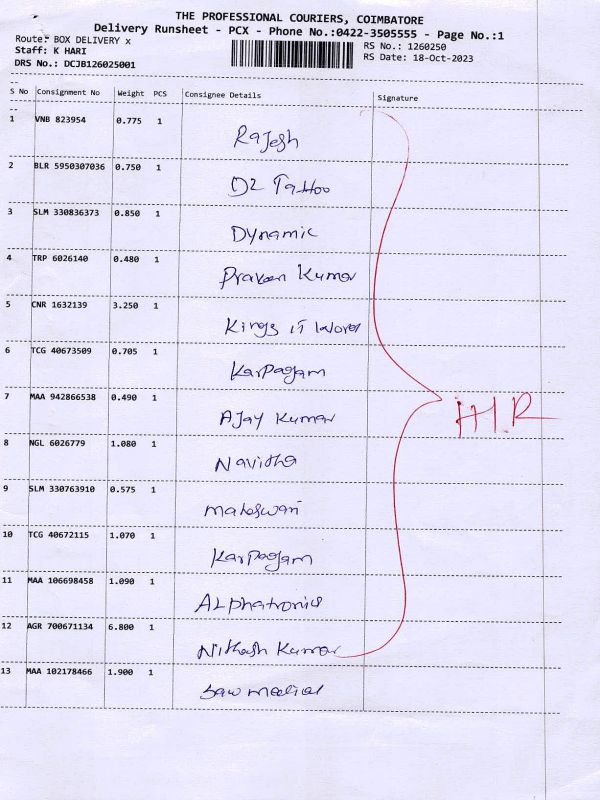 THE PROFESSIONAL COURIERS, COIMBATORE
Delivery Runsheet - PCX - Phone No.:0422-3505555 - Page No.:1
Route: BOX DELIVERY x
RS No.: 1260250
Staff: K HARI
RS Date: 18-Oct-2023
DRS No.: DCJB126025001
S No Consignment No Weight PCS Consignee Details Signature
1 VNB 823954 0.775 1 Rajesh
2 BLR 5950307036 0.750 1 D2 Tattoo
3 SLM 330836373 0.850 1 Dynamic
4 TRP 6026140 0.480 1 Praveen Kumar
5 CNR 1632139 3.250 1 Kings IT World
6 TCG 40673509 0.705 1 Karpagam
7 MAA 942866538 0.490 1 Ajay Kumar
H.R
8 NGL 6026779 1.080 1 Navitha
9 SLM 330763910 0.575 1 maheswari
10 TCG 40672115 1.070 1 Karpagam
11 MAA 106698458 1.090 1 ALphatronics
12 AGR 700671134 6.800 1 Nithash Kumar
13 MAA 102178466 1.900 1